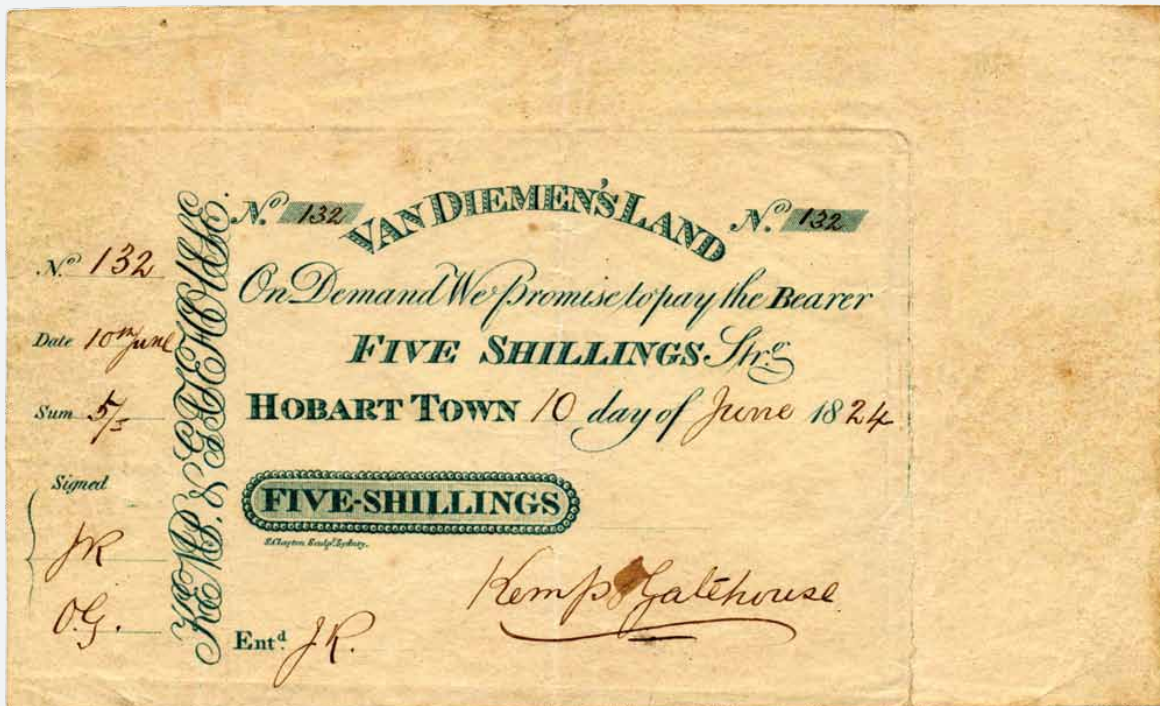 Nº 132
Date 10th June
Sum 5/=
Signed
JK
O.G.
KEMP. & GATEHOUSE.
Nº 132 VAN DIEMEN'S LAND Nº 132
On Demand We Promise to pay the Bearer
FIVE SHILLINGS Strg
HOBART TOWN 10 day of June 1824
FIVE-SHILLINGS
S. Clayton Sculpt. Sydney.
Kemp & Gatehouse
Entd. J.K.